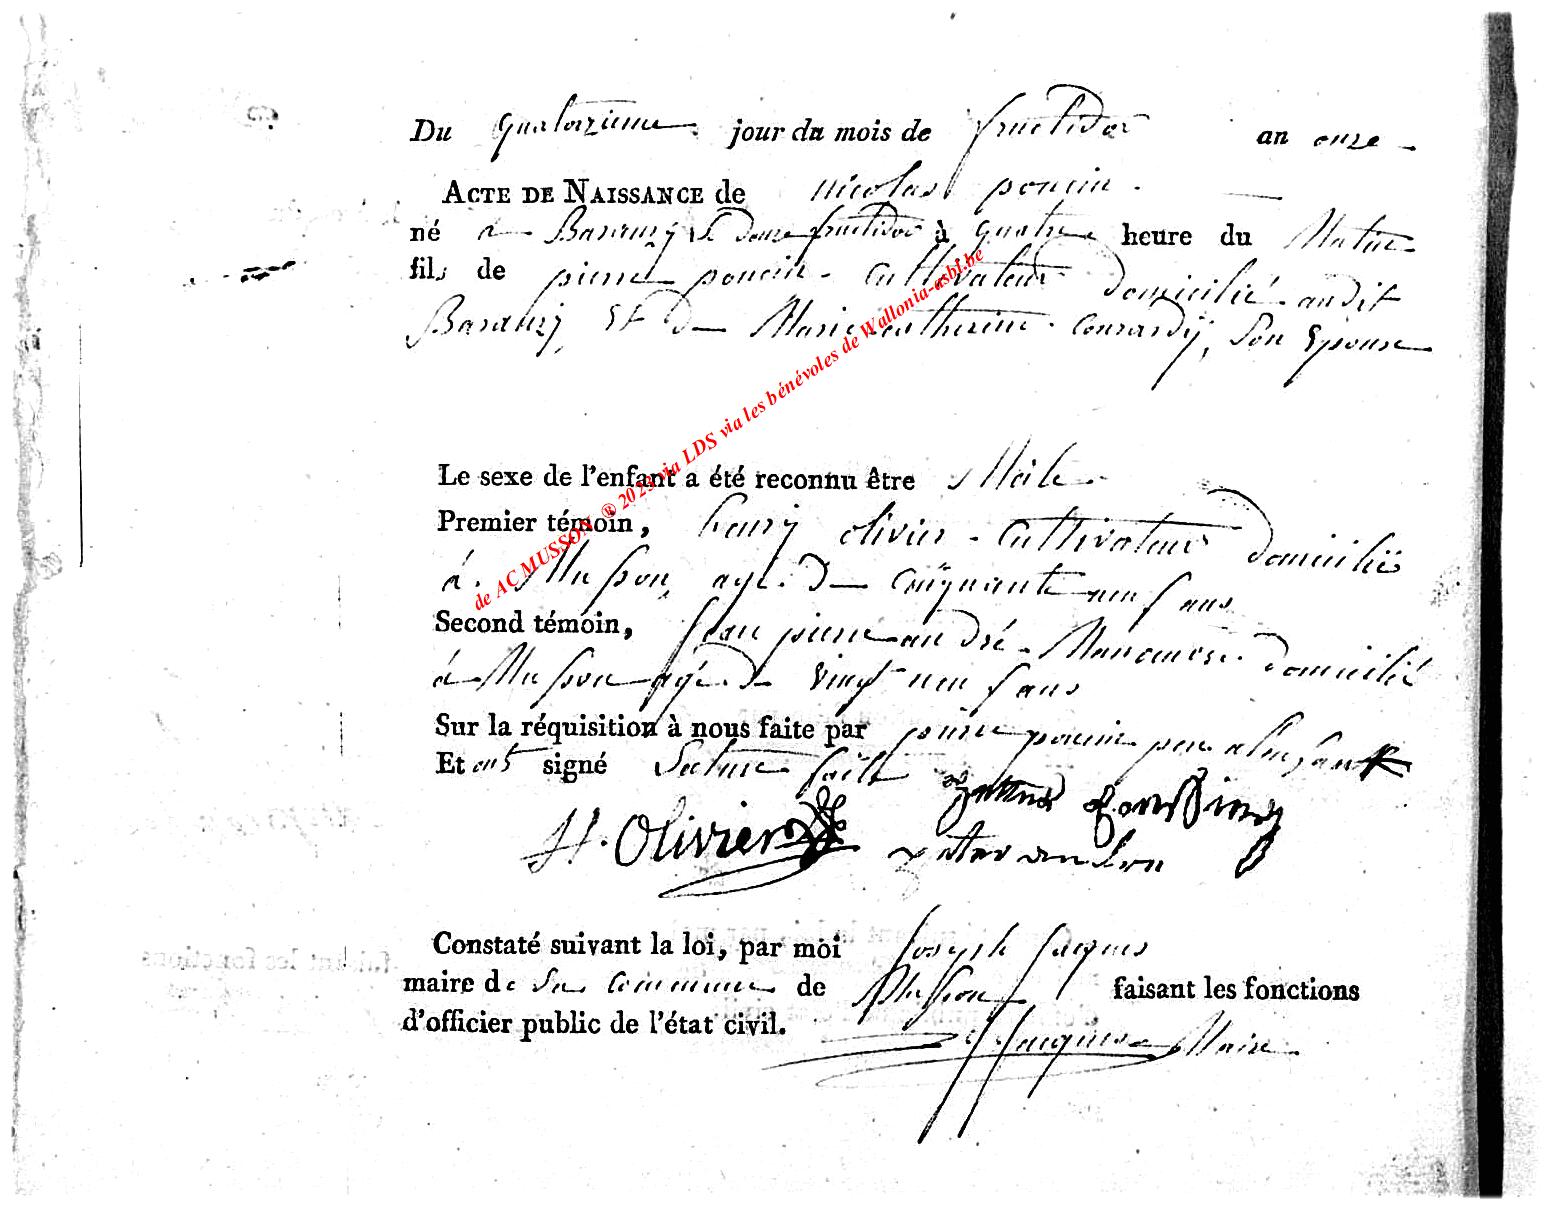 Du quatorzieme jour du mois de fructidor an onze
ACTE DE NAISSANCE de nicolas poncin
né a Baranzy Le douze fructidor à quatre heure du Matin
fils de pierre poncin cultivateur domicilié audit
Baranzy, Et de Marie catherine conrardÿ, Son Epouse
Le sexe de l'enfant a été reconnu être Mâle
Premier témoin, henry olivier cultivateur domicilié
à Musson, agé de cinquante neuf ans
Second témoin, Jean pierre andré Manœuvre domicilié
à Musson agé de vingt neuf ans
Sur la réquisition à nous faite par pierre poncin pere a lenfant
Et ont signé Lecture faitte
H. Olivier
Constaté suivant la loi, par moi Joseph Jacques
maire de La commune de Musson faisant les fonctions
d'officier public de l'état civil.
J Jacques Maire
de ACMUSSON ® 2023 via LDS via les bénévoles de Wallonia-asbl.be